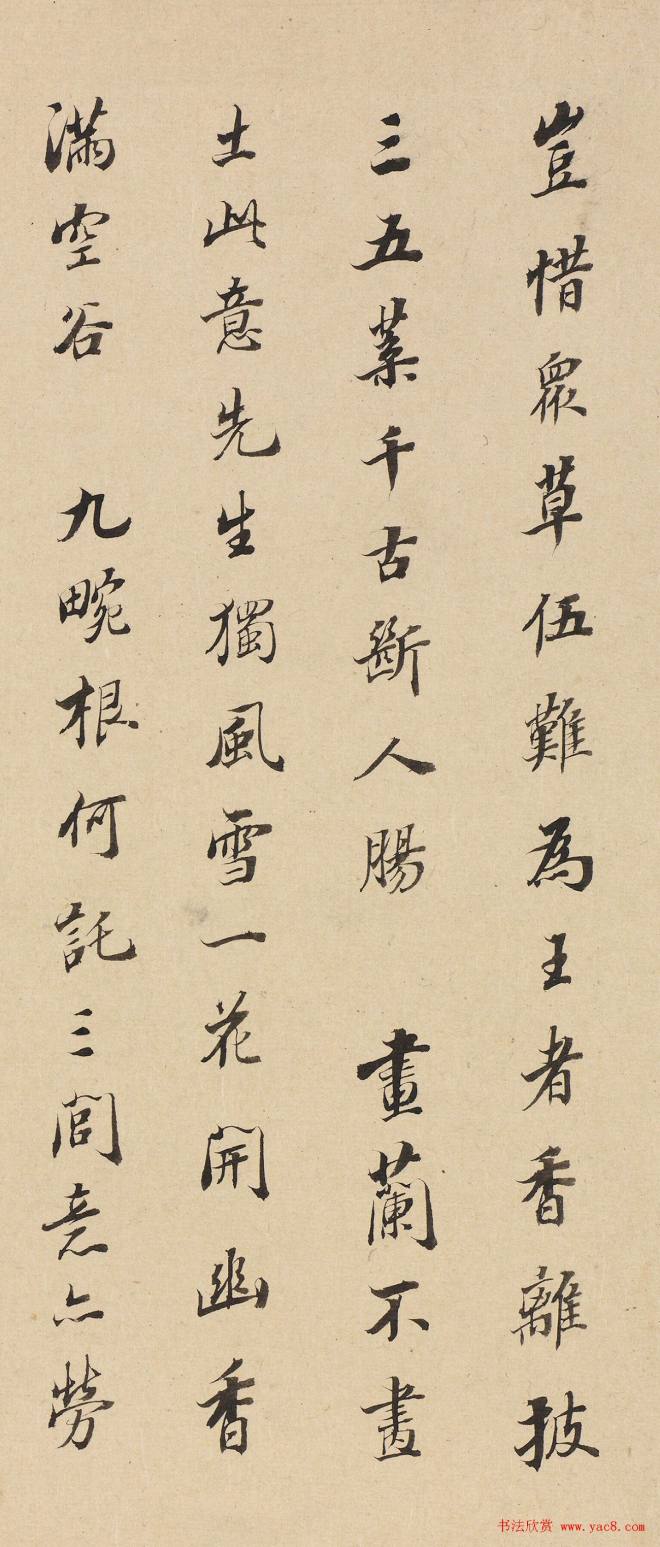 豈惜衆草伍難為王者香離披
三五葉千古斷人腸 畫蘭不畫
土此意先生獨風雪一花開幽香
滿空谷 九畹根何託三閭意亦勞
书法欣赏 www.yac8.com